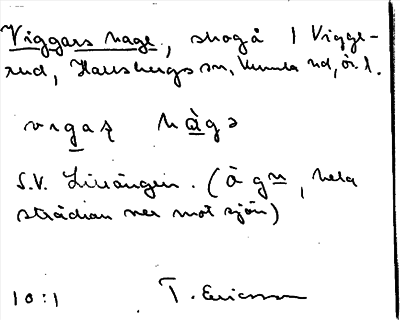 Viggars hage, skogå i Vigge-
rud, Hallsbergs sn, Kumla hd, ör. l.
vıgaʂ hàgə
S.V. Lillängen. (à gn, hela
strädian ner mot sjön)
10:1 T. Ericsson